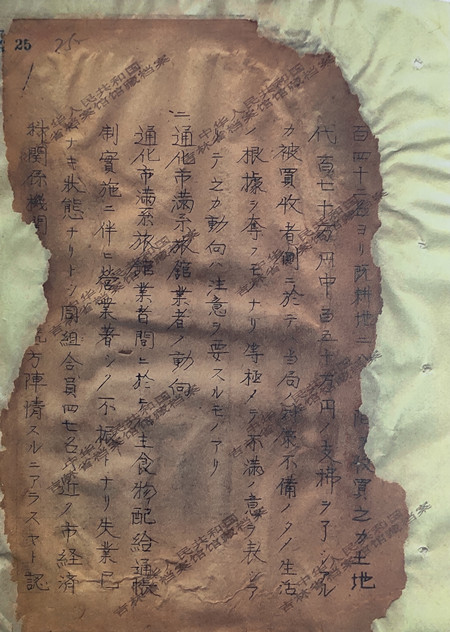 25
25
百四十二名ヨリ既耕地二八 陌ヲ收買之カ土地
代 百七十万円中百五十万円ノ支拂ヲ了シアル
カ被買收者側ニ於テハ当局ノ対策不備ノタメ生活
ノ根據ヲ奪クモノナリ等極メテ不満ノ意ヲ表シア
テ之カ動向ハ注意ヲ要スルモノアリ
二 通化市満系旅館業者ノ動向
通化市満系旅館業者間ニ於テハ主食物配給通帳
制實施ニ伴ヒ營業著シク不振トナリ失業已
ナキ狀態ナリトシ同組合員四七名ハ近ク市経済
科関係機関 方陣情スルニアラスヤト認
中华人民共和国
吉林省档案馆馆藏档案